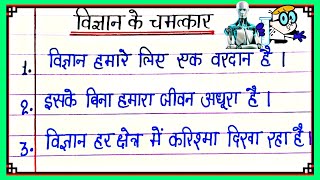 विज्ञान के चमत्कार
1. विज्ञान हमारे लिए एक वरदान है ।
2. इसके बिना हमारा जीवन अधूरा है ।
3. विज्ञान हर क्षेत्र में करिश्मा दिखा रहा है ।